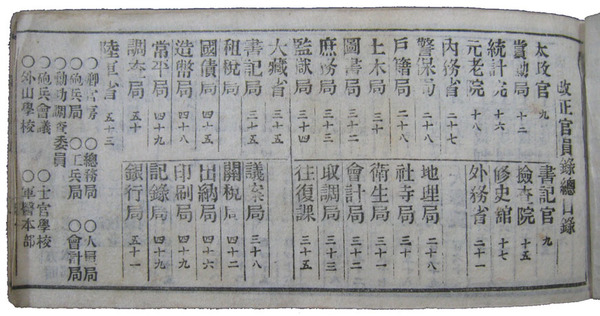 改正官員錄總目錄
太政官 九 書記官 九
賞勳局 十二 檢査院 十五
統計院 十六 修史館 十七
元老院 十八 外務省 二十一
內務省 二十七
警保局 二十八 地理局 二十八
戶籍局 二十八 社寺局 三十
土木局 三十一 衛生局 三十一
圖書局 三十二 會計局 三十二
庶務局 三十三 取調局 三十三
監獄局 三十四 往復課 三十五
大藏省 三十五
書記局 三十五 議案局 三十八
租稅局 關稅局 四十二
國債局 四十五 出納局 四十六
造幣局 四十八 印刷局 四十九
常平局 四十九 記錄局 四十九
調査局 五十 銀行局 五十一
陸軍省 五十三
○卿官房 ○總務局 ○人員局
○砲兵局 ○工兵局 ○會計局
○勳功調査委員
○砲兵會議 ○士官學校
山學校 ○軍醫本部